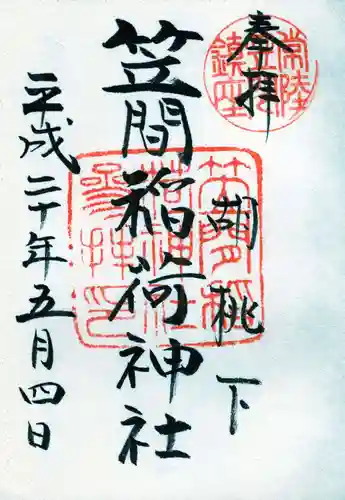 奉拝
胡桃下
笠間稲荷神社
平成二十年五月四日